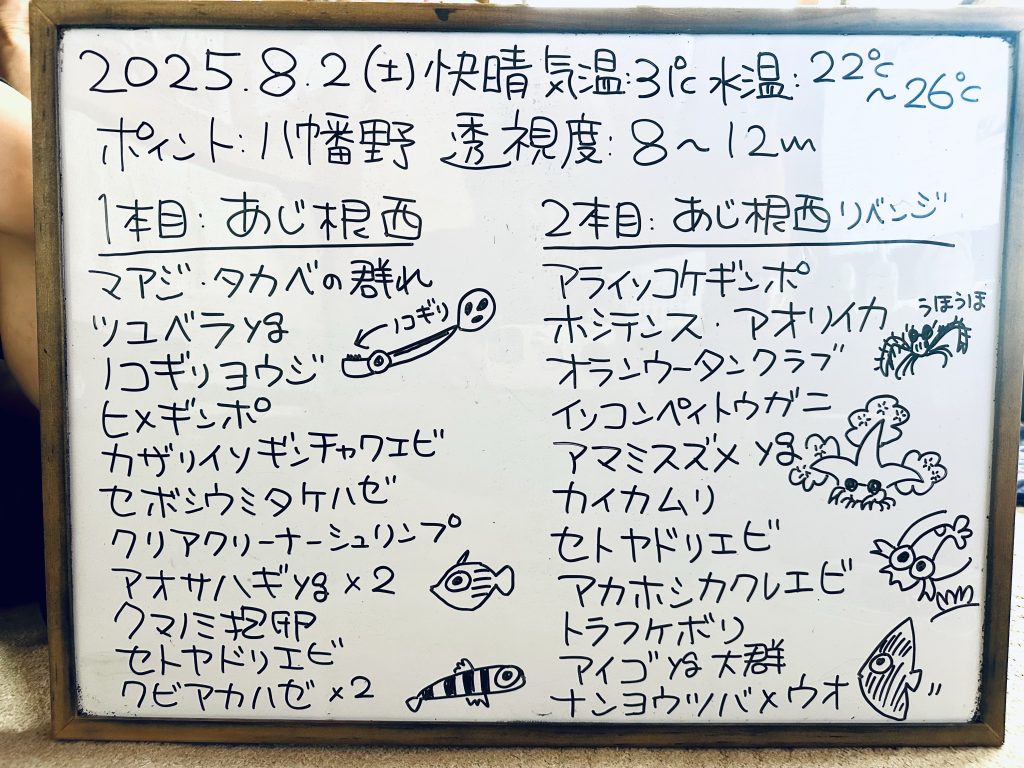 2025.8.2(土)快晴 気温:31℃ 水温:22℃～26℃
ポイント:八幡野 透視度:8～12m
1本目:あじ根西
マアジ・タカベの群れ
ツユベラyg
ノコギリヨウジ
ノコギリ
ヒメギンポ
カザリイソギンチャクエビ
セボシウミタケハゼ
クリアクリーナーシュリンプ
アオサハギyg×2
クマノミ抱卵
セトヤドリエビ
クビアカハゼ×2
2本目:あじ根西リベンジ
アライソコケギンポ
ホシテンス・アオリイカ
うほうほ
オランウータンクラブ
イソコンペイトウガニ
アマミスズメyg
カイカムリ
セトヤドリエビ
アカホシカクレエビ
トラフケボリ
アイゴyg大群
ナンヨウツバメウオ